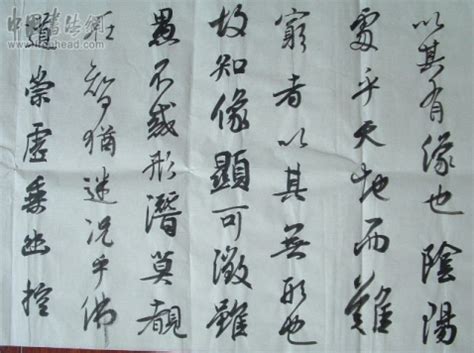 以其有像也陰陽
處乎天地而難
窮者以其無形也
故知像顯可徵雖
愚不惑形潛莫覩
在智猶迷況乎佛
道崇虛乘幽控
中国书法網